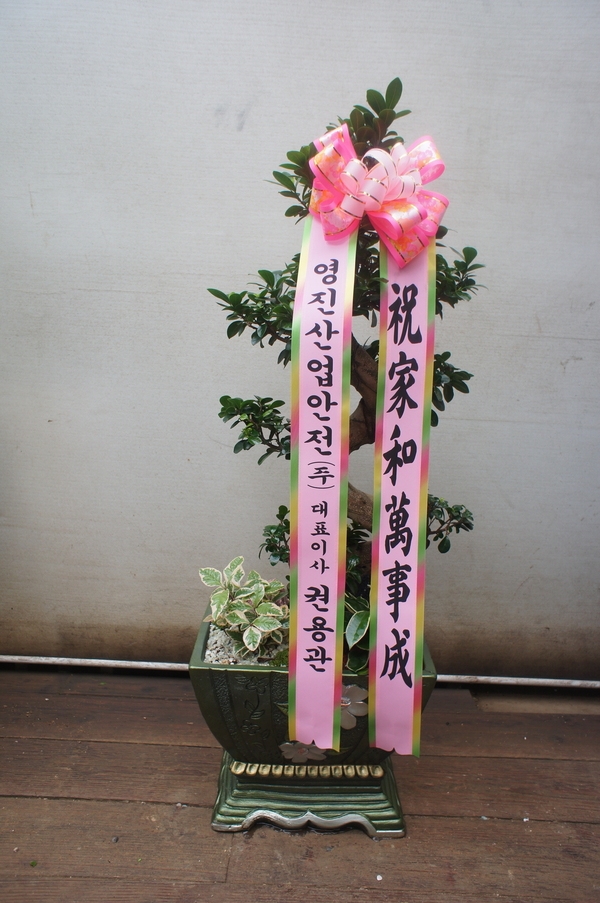 祝家和萬事成
영진산업안전(주) 대표이사 권용관